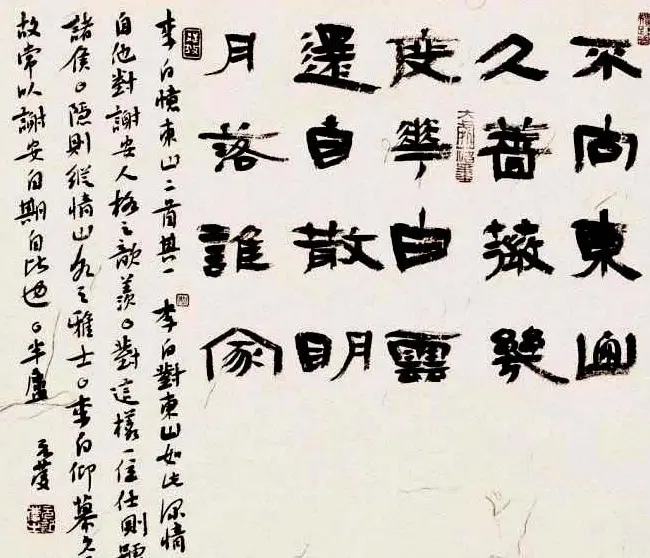 不向東山
久薔薇幾
度華白雲
還自散明
月落誰家
李白憶東山二首其一 李白對東山如此深情
自他對謝安人格之歆羨。對這樣一位仕則
諸侯。隱則縱情山水之雅士。李白仰慕
故常以謝安自期自比也。半廬